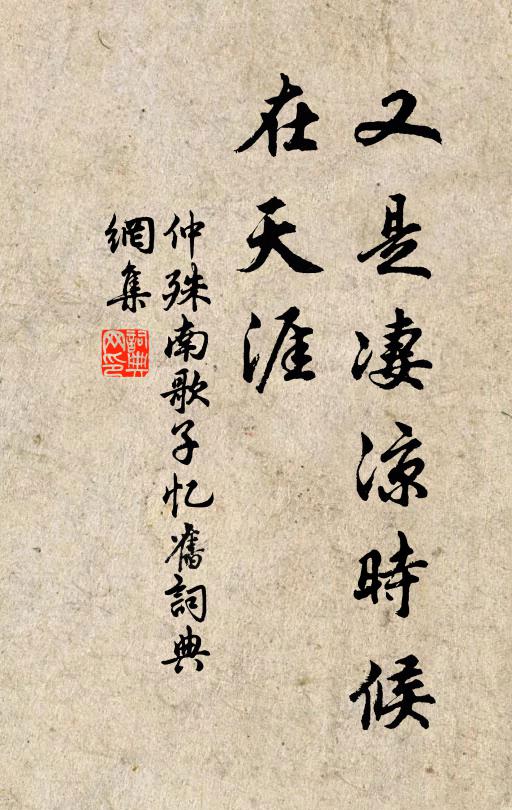 又是凄涼時候
在天涯
仲殊南歌子忆舊詞典
網集
詞典
网印